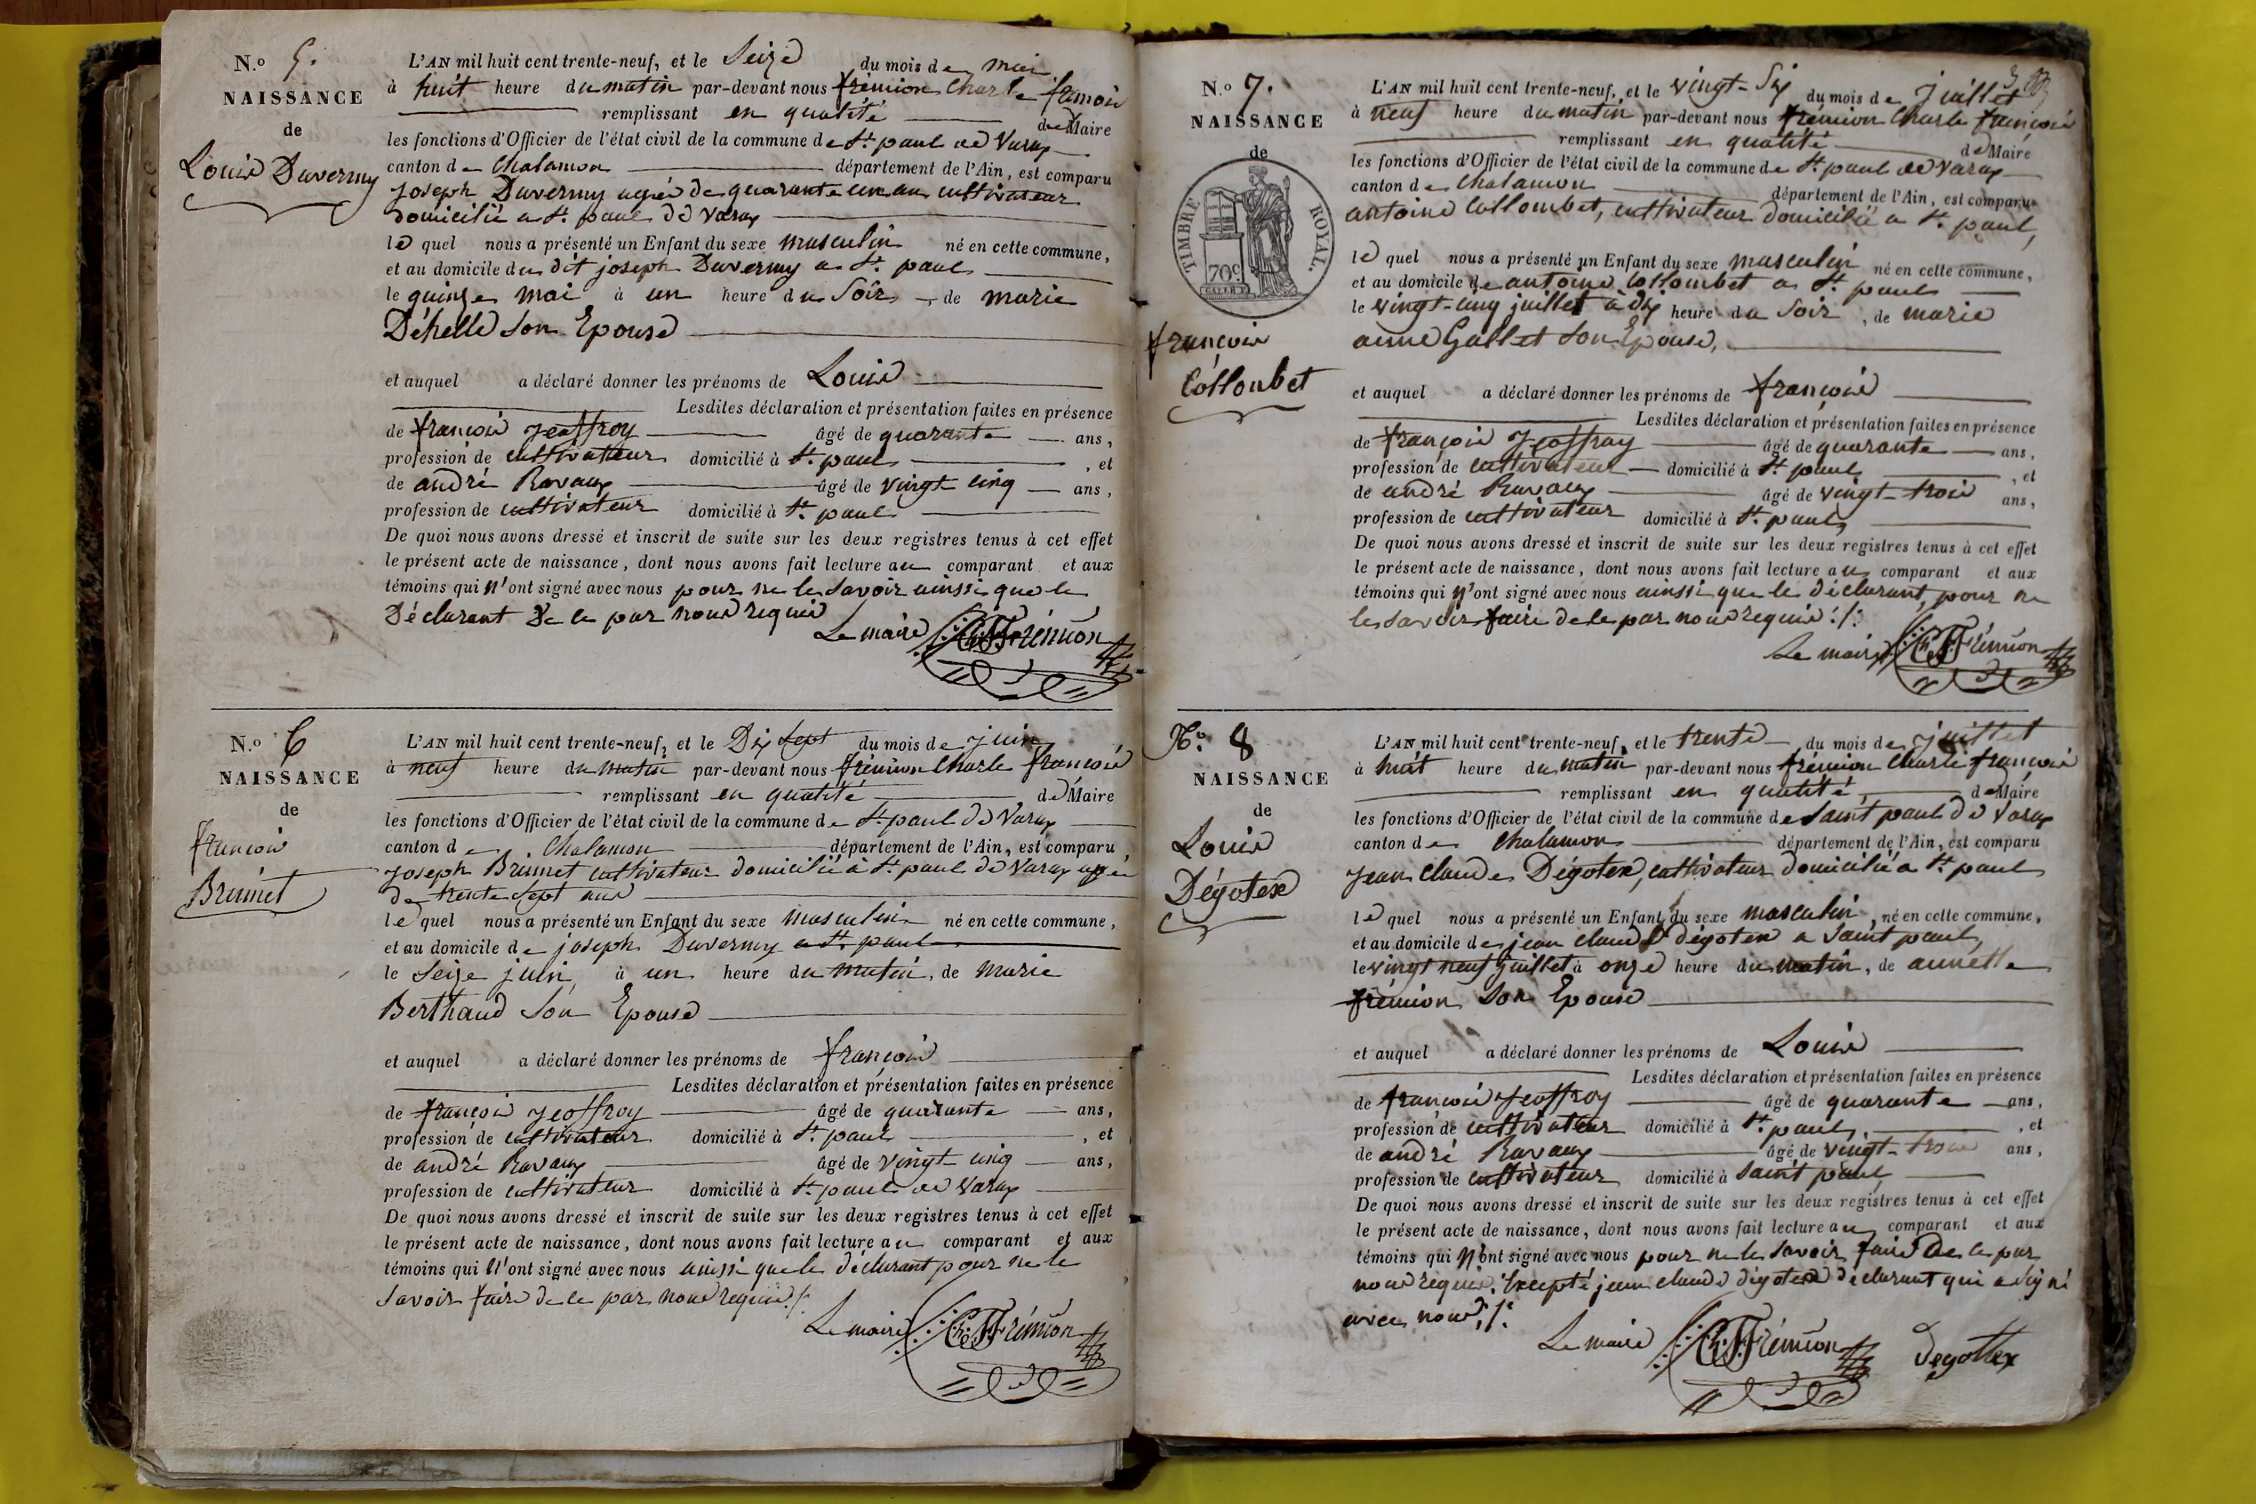 N.o 5.
NAISSANCE
de
Louis Duvernay
L'AN mil huit cent trente-neuf, et le Seize du mois de mai
à huit heure du matin par-devant nous frémion Charle françois
remplissant en qualité de Maire
les fonctions d'Officier de l'état civil de la commune de St paul de Varax
canton de Chalamon département de l'Ain, est comparu
joseph Duvernay agée de quarante un an cultivateur
domicilié a St paul de Varax
le quel nous a présenté un Enfant du sexe masculin né en cette commune,
et au domicile du dit joseph Duvernay a St paul
le quinze mai à un heure du Soir, de marie
Déhelle Son Epouse
et auquel a déclaré donner les prénoms de Louis
Lesdites déclaration et présentation faites en présence
de françois jeoffroy âgé de quarante ans,
profession de cultivateur domicilié à St paul, et
de andré Ravaux âgé de vingt cinq ans,
profession de cultivateur domicilié à St paul
De quoi nous avons dressé et inscrit de suite sur les deux registres tenus à cet effet
le présent acte de naissance, dont nous avons fait lecture au comparant et aux
témoins qui n'ont signé avec nous pour ne le savoir ainsi que le
Déclarant De ce par nous requis
Le maire Ch. F. Frémion
N.o 6
NAISSANCE
de
françois
Brunet
L'AN mil huit cent trente-neuf, et le Dix Sept du mois de juin
à neuf heure du matin par-devant nous frémion Charle françois
remplissant en qualité de Maire
les fonctions d'Officier de l'état civil de la commune de St paul de Varax
canton de Chalamon département de l'Ain, est comparu
joseph Brunet cultivateur domicilié à St paul de Varax agée
de trente Sept ans
le quel nous a présenté un Enfant du sexe masculin né en cette commune,
et au domicile de joseph Duvernay a St paul
le Seize juin à un heure du matin, de marie
Berthaud Son Epouse
et auquel a déclaré donner les prénoms de françois
Lesdites déclaration et présentation faites en présence
de françois jeoffroy âgé de quarante ans,
profession de cultivateur domicilié à St paul, et
de andré Ravaux âgé de vingt cinq ans,
profession de cultivateur domicilié à St paul de Varax
De quoi nous avons dressé et inscrit de suite sur les deux registres tenus à cet effet
le présent acte de naissance, dont nous avons fait lecture au comparant et aux
témoins qui n'ont signé avec nous ainsi que le déclarant pour ne le
savoir faire de ce par nous requis
Le maire Ch. F. Frémion
N.o 7.
NAISSANCE
de
TIMBRE ROYAL.
70c
françois
Colloubet
L'AN mil huit cent trente-neuf, et le vingt-Six du mois de juillet
à neuf heure du matin par-devant nous frémion Charle françois
remplissant en qualité de Maire
les fonctions d'Officier de l'état civil de la commune de St paul de Varax
canton de Chalamon département de l'Ain, est comparu
antoine Colloubet, cultivateur domicilié a St paul,
le quel nous a présenté un Enfant du sexe masculin né en cette commune,
et au domicile de antoine Colloubet a St paul
le vingt-cinq juillet à dix heure du Soir, de marie
anne Gallet Son Epouse,
et auquel a déclaré donner les prénoms de françois
Lesdites déclaration et présentation faites en présence
de françois jeoffroy âgé de quarante ans,
profession de cultivateur domicilié à St paul, et
de andré Ravaux âgé de vingt-trois ans,
profession de cultivateur domicilié à St paul,
De quoi nous avons dressé et inscrit de suite sur les deux registres tenus à cet effet
le présent acte de naissance, dont nous avons fait lecture au comparant et aux
témoins qui n'ont signé avec nous ainsi que le déclarant, pour ne
le savoir faire de ce par nous requis
Le maire Ch. F. Frémion
No. 8
NAISSANCE
de
Louis
Dégotex
L'AN mil huit cent trente-neuf, et le trente du mois de juillet
à huit heure du matin par-devant nous frémion Charle françois
remplissant en qualité, de Maire
les fonctions d'Officier de l'état civil de la commune de Saint paul de Varax
canton de Chalamon département de l'Ain, est comparu
jean claude Dégotex, cultivateur domicilié a St paul
le quel nous a présenté un Enfant du sexe masculin, né en cette commune,
et au domicile de jean claude dégotex a Saint paul,
le vingt neuf juillet à onze heure du matin, de annette
frémion Son Epouse
et auquel a déclaré donner les prénoms de Louis
Lesdites déclaration et présentation faites en présence
de françois jeoffroy âgé de quarante ans,
profession de cultivateur domicilié à St paul, et
de andré Ravaux âgé de vingt-trois ans,
profession de cultivateur domicilié à Saint paul,
De quoi nous avons dressé et inscrit de suite sur les deux registres tenus à cet effet
le présent acte de naissance, dont nous avons fait lecture au comparant et aux
témoins qui n'ont signé avec nous pour ne le savoir faire de ce par
nous requis. Excepté jean claude dégotex déclarant qui a signé
avec nous
Le maire Ch. F. Frémion Degottex